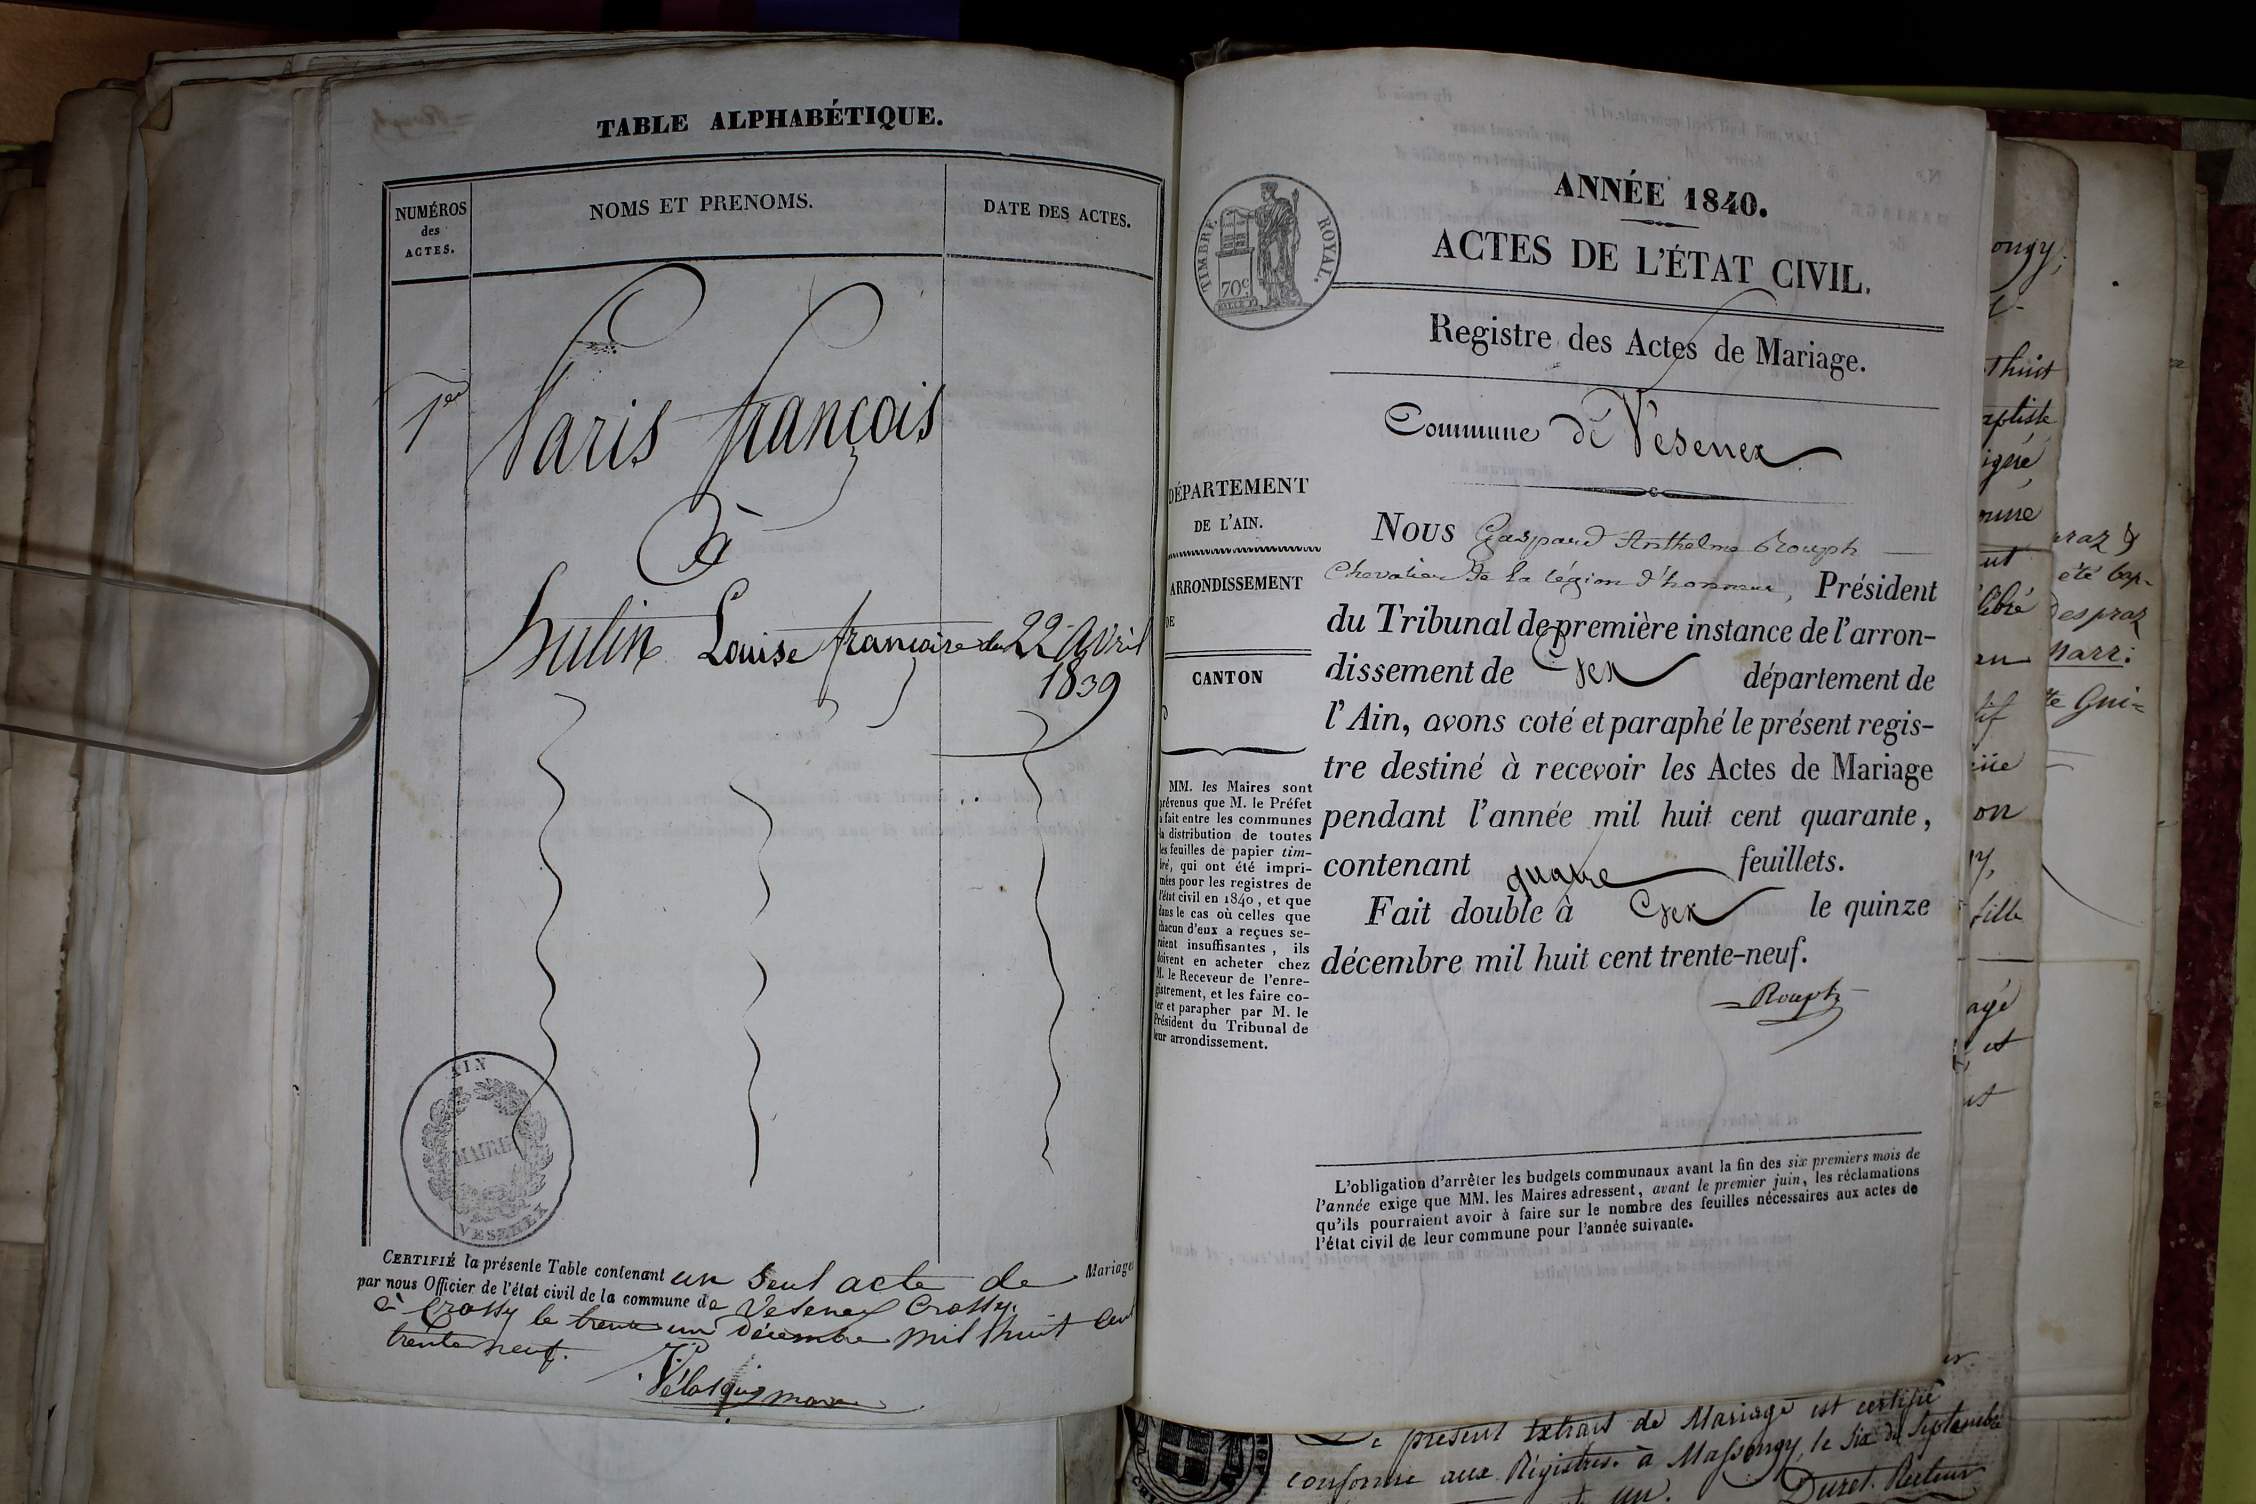 TABLE ALPHABÉTIQUE.
NUMÉROS
des
ACTES.
NOMS ET PRENOMS.
DATE DES ACTES.
1er
Paris françois
à
hulin Louise françoise du 22 avril
1839
AIN
MAIRIE
VESENEX
CERTIFIÉ la présente Table contenant un seul acte de Mariage
par nous Officier de l'état civil de la commune de Vesenex Crassy.
à Crassy le trente un décembre mil huit cent
trente neuf.
TIMBRE ROYAL.
70c
ANNÉE 1840.
ACTES DE L'ÉTAT CIVIL.
Registre des Actes de Mariage.
Commune de Vesenex
DÉPARTEMENT
DE L'AIN.
ARRONDISSEMENT
DE
CANTON
D
MM. les Maires sont
prévenus que M. le Préfet
a fait entre les communes
la distribution de toutes
les feuilles de papier tim-
bré, qui ont été impri-
mées pour les registres de
l'état civil en 1840, et que
dans le cas où celles que
chacun d'eux a reçues se-
raient insuffisantes, ils
doivent en acheter chez
M. le Receveur de l'enre-
gistrement, et les faire co-
ter et parapher par M. le
Président du Tribunal de
leur arrondissement.
Nous Gaspard Anthelme Rouph
Chevalier de la légion d'honneur, Président
du Tribunal de première instance de l'arron-
dissement de Gex département de
l'Ain, avons coté et paraphé le présent regis-
tre destiné à recevoir les Actes de Mariage
pendant l'année mil huit cent quarante,
contenant quatre feuillets.
Fait double à Gex le quinze
décembre mil huit cent trente-neuf.
Rouph
L'obligation d'arrêter les budgets communaux avant la fin des six premiers mois de
l'année exige que MM. les Maires adressent, avant le premier juin, les réclamations
qu'ils pourraient avoir à faire sur le nombre des feuilles nécessaires aux actes de
l'état civil de leur commune pour l'année suivante.
présent Extrait de Mariage est certifié
conforme aux Régistres. à Massongy, le six de Septembre
Duret. Recteur